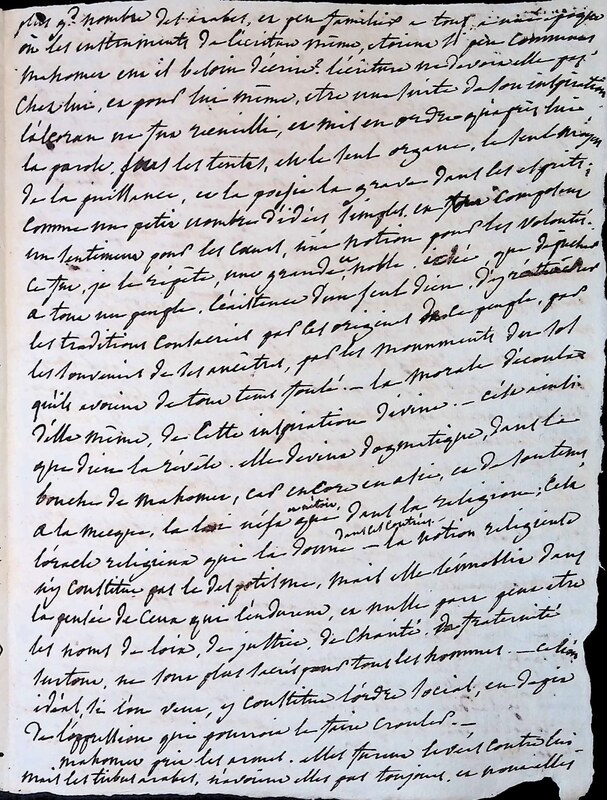 plus gd nombre des arabes, et peu familier a tous a une époque
où les instruments de l'écriture même, étoient si peu communs
mahomet eut il besoin d'écrire? l'écriture ne devoit elle pas
chez lui, et pour lui même, être une suite de son inspiration
l'alcoran ne fut recueilli, et mis en ordre qu'après lui
la parole, sous les tentes, est le seul organe, le seul moyen
de la puissance, et la poésie la grave dans les esprits:
comme un petit nombre d'idées simples, en composent
un sentiment pour les cœurs, une notion pour les volontés.
ce fut, je le répète, une grande et noble idée, que de prêcher
a tout un peuple, l'existence d'un seul dieu, d'y rattacher
les traditions consacrées par les origines de ce peuple, par
les souvenirs de ses ancêtres, par les monuments du sol
qu'ils avoient de tout tems foulé. — la morale découla
d'elle même, de cette inspiration divine. — c'est ainsi
que dieu la révèle. elle devint dogmatique, dans la
bouche de mahomet, car encore en asie, et de son tems
a la mecque, la loi n'étoit que dans la religion; c'est
l'oracle religieux qui la donne dans ces contrées. — la notion religieuse
n'y constitue pas le despotisme, mais elle l'ennoblit dans
la pensée de ceux qui l'endurent, et nulle part peut être
les noms de loix, de justice, de charité, de fraternité
surtout, ne sont plus sacrés pour tous les hommes. — ce lien
idéal, si l'on veut, y constitue l'ordre social, en dépit
de l'oppression qui pourroit le faire crouler —
mahomet prit les armes. elles furent levées contre lui.
mais les tribus arabes, n'avoient elles pas toujours, et nouvelles